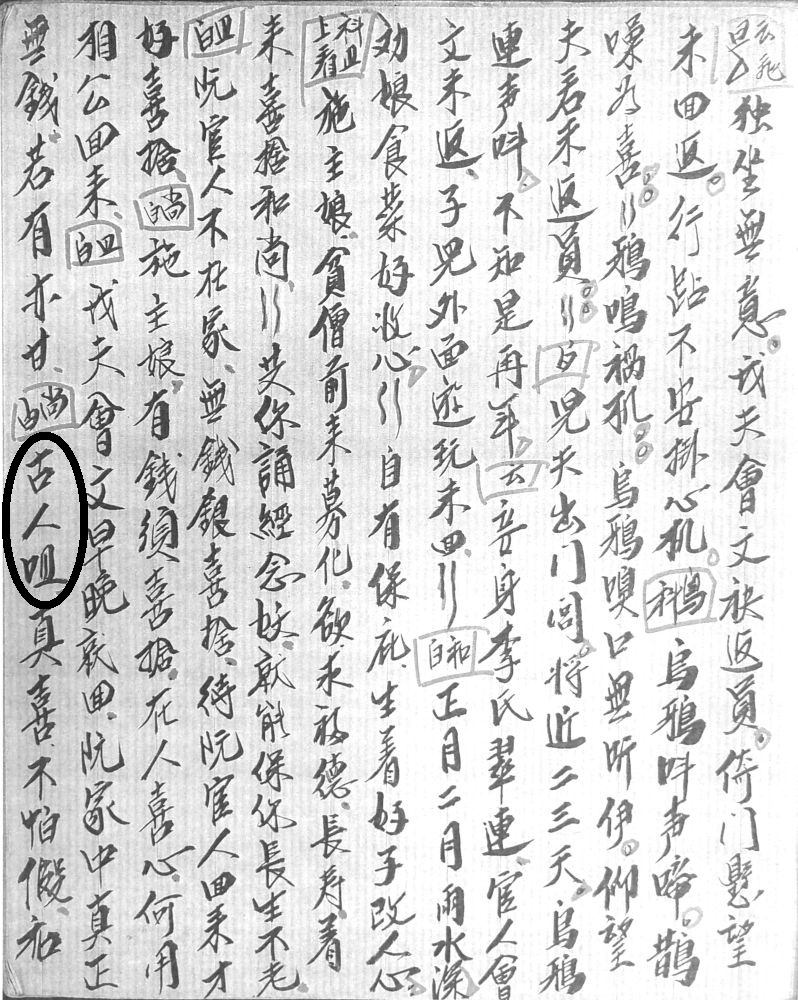 独坐無意。戏夫會文袂返員。倚门懸望
未回返。行跕不安掛心机。科鳥烏鴉叫声啼。鵲
噪为喜〃鴉鳴禍机。烏鴉嗅口無听伊。仰望
夫君未返員〃児夫出门间将近二三天。烏鴉
連声叫不知是再年云音身李氏翠連。官人會
文未返。子児外面遊玩未回〃白和正月二月雨水深
劝娘食菜好收心〃自有保庇。生着好子改人心
科皿上看施主娘。貪僧前来募化。欲求福德。長寿着
来喜捨和尚〃艾你誦經念妖就能保你長生不老。
白皿阮官人不在家。無錢銀喜捨。待阮官人回来才
好喜捨。白尚施主娘。有錢須喜捨。在人喜心何用
相公回来。白皿戏夫會文早晚就回。阮家中真正
無錢。若有亦甘。白尚古人咀真喜不怕假。和